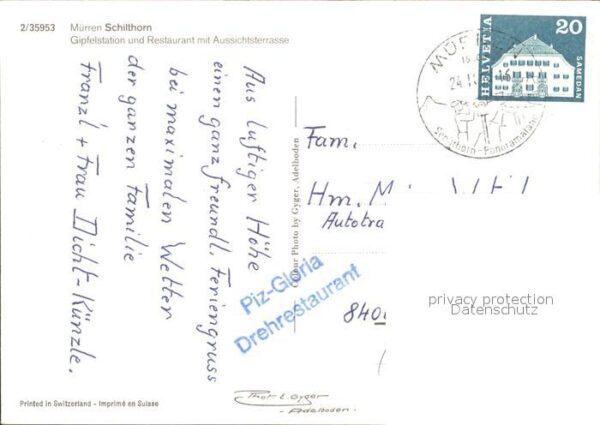 2/35953 Mürren Schilthorn
Gipfelstation und Restaurant mit Aussichtsterrasse
Aus luftiger Höhe
einen ganz freundl. Feriengruss
bei maximalen Wetter
der ganzen Familie
Franz'l + Frau Dicht-Künzle.
Colour Photo by Gyger, Adelboden
Piz-Gloria
Drehrestaurant
MÜR
24
Schilthorn - Panorama
HELVETIA
20
SAMEDAN
Fam.
Hrn.
Autotra
840
privacy protection
Datenschutz
Printed in Switzerland - Imprimé en Suisse
Phot. E. Gyger
Adelboden.